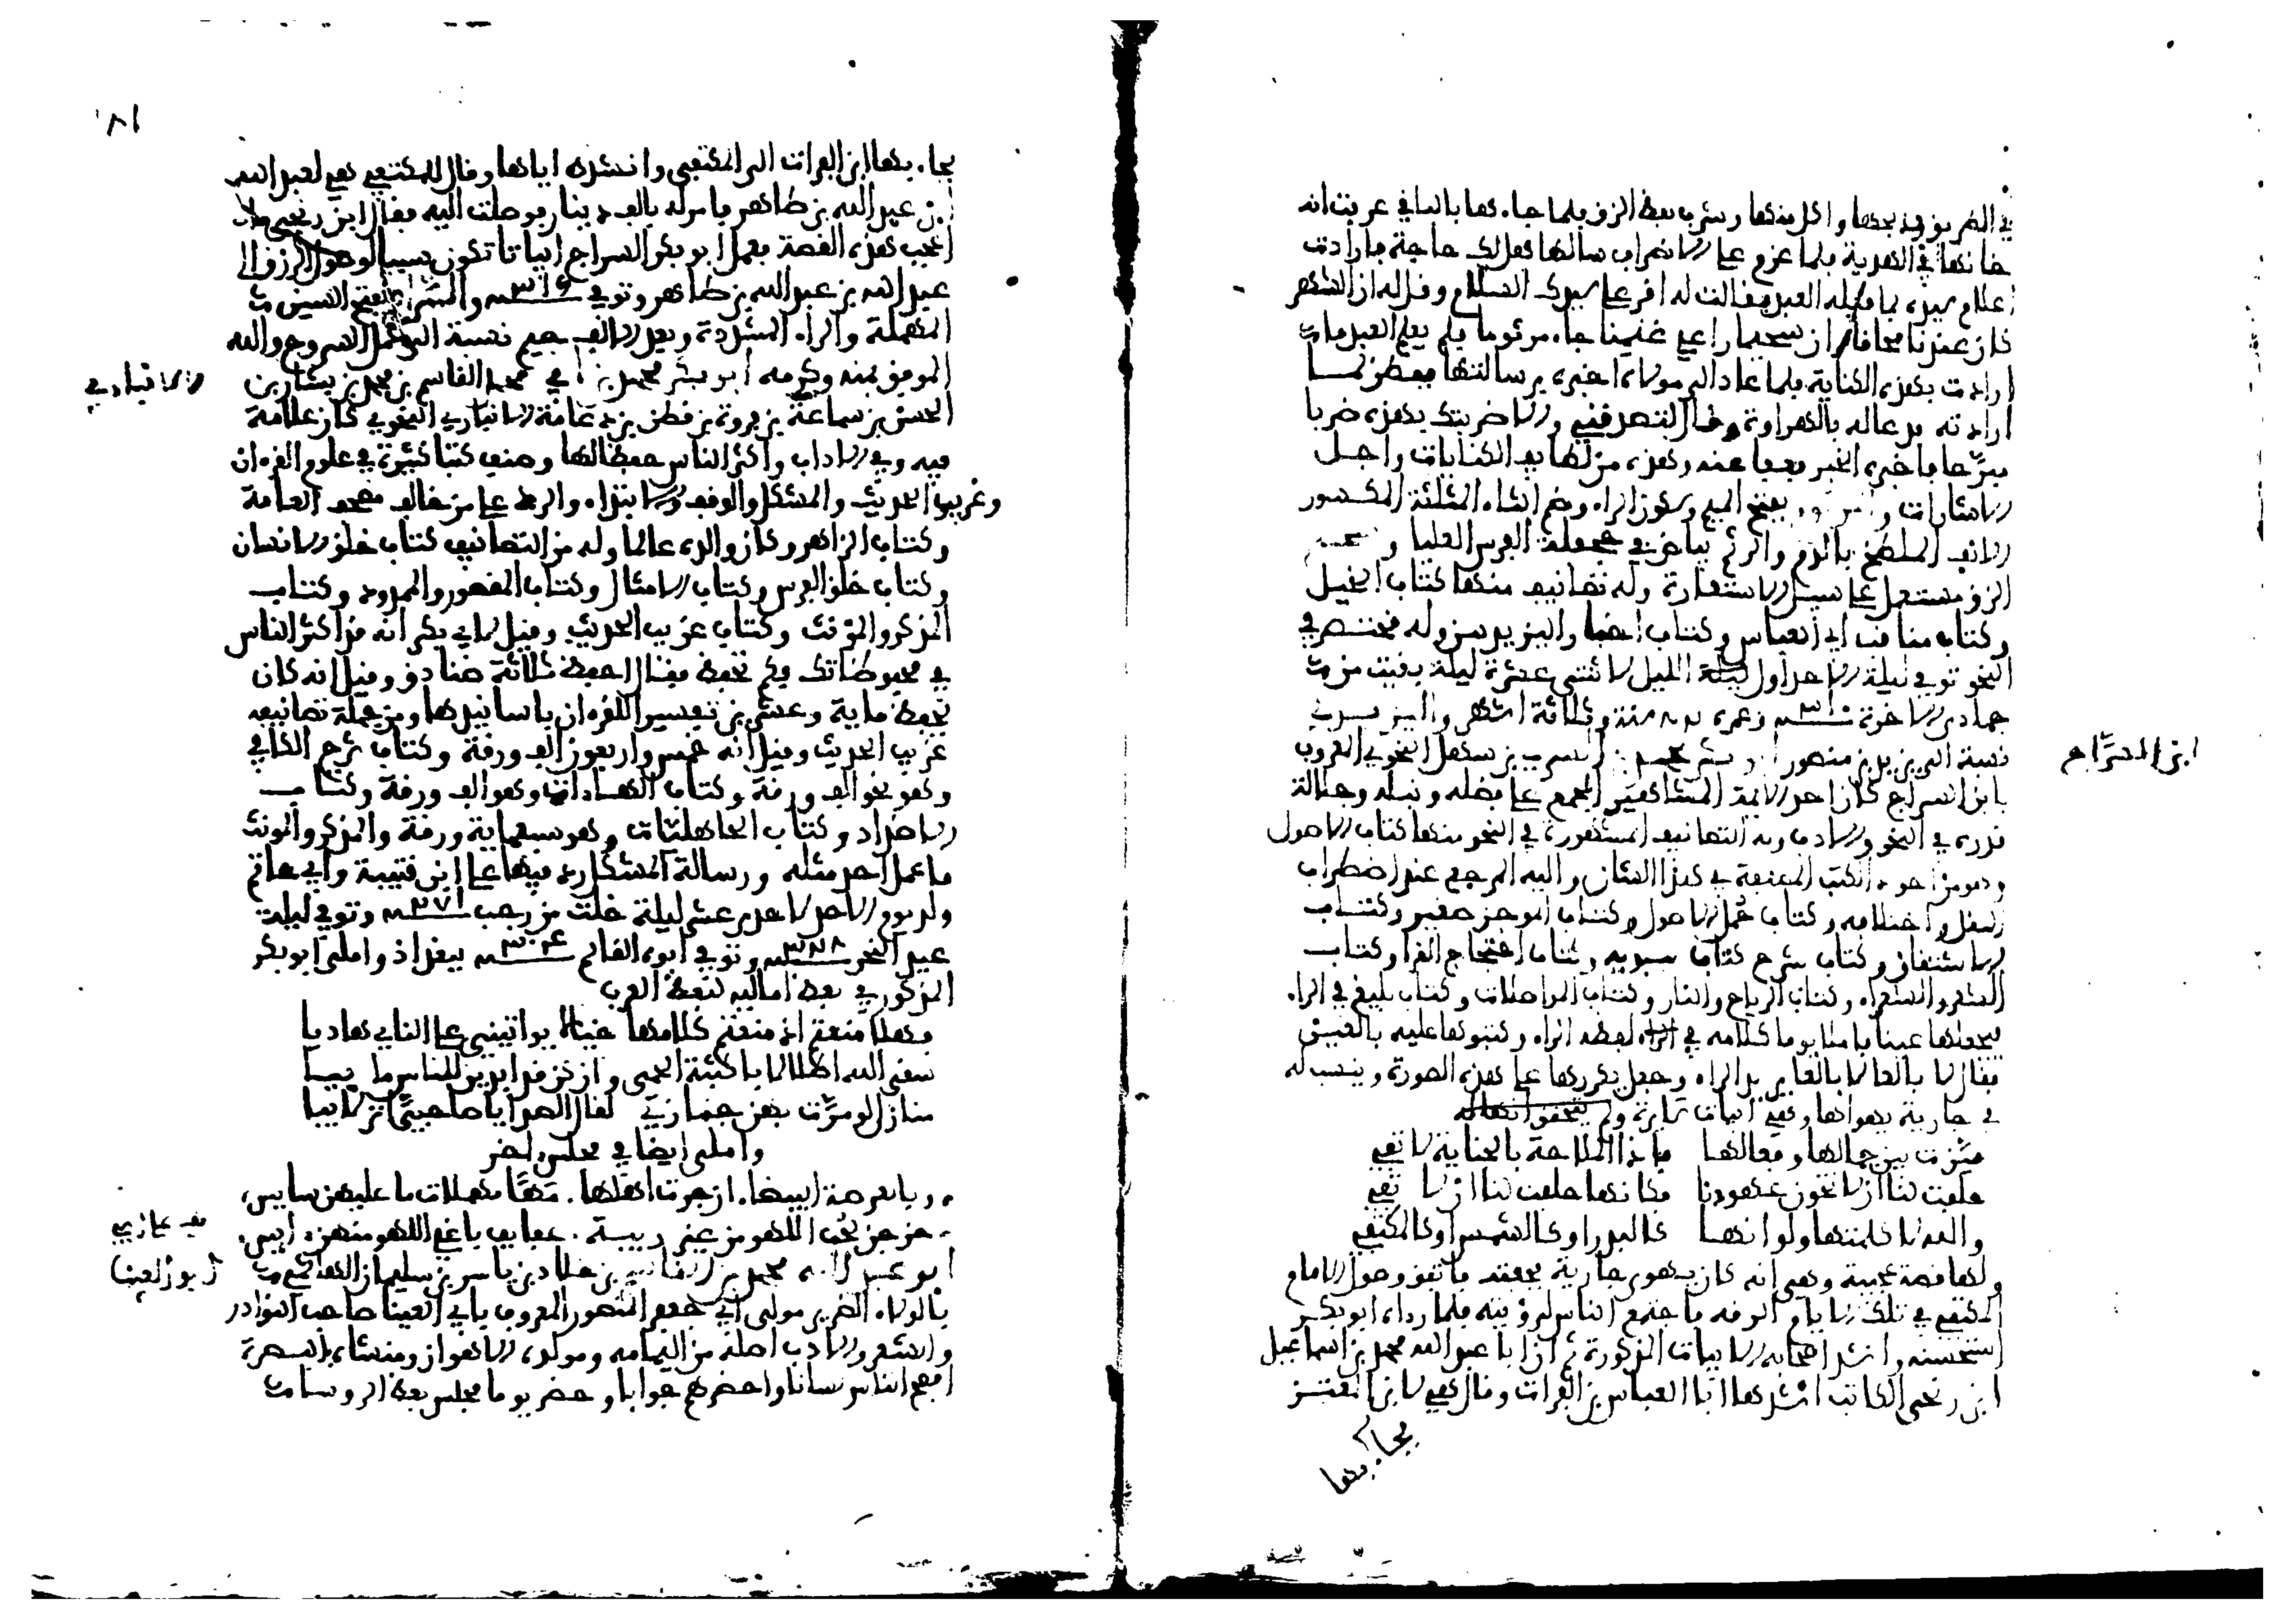 في الطريق فذبحها واكل منها وشرب بعض الزق فلما جاءها بالباقي عرفت انه
خانها في الهدية فلما عزم على الانصراف سالها هل لك حاجة فارادت
اعلام سيده بما فعله العبد فقالت له اقرء على سيدك السلام وقل له ان الشهر
كان عندنا محاقا وان سحيما راعي غنمنا جاء مرثوما فلم يعلم العبد ما
ارادت بهذه الكناية فلما عاد الى مولاه اخبره برسالتها ففطن لما
ارادته فدعا له بالهراوة وقال لتصدقني والا ضربتك بهذه ضربا
مبرحا فاخبره الخبر فعفا عنه وهذه من لطايف الكنايات واحلى
الاشارات بفتح الميم وسكون الراء وضم الثاء المثلثة المكسور
الانف الملطخ بالدم والرثم بياض في جحفلة الفرس العليا
الزق مستعمل على سبيل الاستعارة وله تصانيف منها كتاب الخيل
وكتاب مناقب ابي العباس وكتاب اخبار اليزيديين وله مختصر في
النحو توفي ليلة الاحد اول الليل لاثنتي عشرة ليلة بقيت من
جمادى الاخرة وعمره منة وثلاثة اشهر واليزيدي
نسبة الى يزيد بن منصور السري بن سهل النحوي المعروف
ابن السراج
بابن السراج كان احد الائمة المشاهير المجمع على فضله ونبله وجلالة
قدره في النحو والادب وله التصانيف المشهورة في النحو منها كتاب الاصول
وهو من اجود الكتب المصنفة في هذا الشان واليه المرجع عند اضطراب
النقل واختلافه وكتاب جمل الاصول وكتاب الموجز صغير وكتاب
الاشتقاق وكتاب شرح كتاب سيبويه وكتاب احتجاج القرا وكتاب
الشعر والشعراء وكتاب الرياح والنار وكتاب المواصلات وكان يلثغ في الراء
فيجعلها غينا فاملا يوما كلامه في لفظه الراء وكتبوها عليه بالغين
فقال لا بالغا لا بالغا يريد الراء وجعل يكررها على هذه الصورة وينسب له
في جارية يهواها وهي ابيات سايرة ولم يتحقق انها له
ميزت بين جمالها وفعالها فاذا الملاحة بالخيانة لا تفي
حلفت لنا ان لا تخون عهودنا فكانها حلفت لنا ان لا تفي
والله لا كلمتها ولو انها كالبدر او كالشمس او كالمكتفي
ولها قصة عجيبة وهي انه كان يهوى جارية فجفته فاتفق وصول الامام
المكتفي في تلك الايام الرقة فاجتمع الناس لرؤيته فلما رءاه ابو بكر
استحسنه وانشد اصحابه الابيات المذكورة ثم ان ابا عبد الله محمد بن اسماعيل
ابن زنجي الكاتب انشدها ابا العباس بن الفرات وقال هي لابن المعتز
فجاء بها
فجاء بها ابن الفرات الى المكتفي وانشده اياها وقال للمكتفي هي لعبد الله
بن عبد الله بن طاهر فامر له بالف دينار فوصلت اليه فقال ابن زنجي ما
اعجب هذه القصة يعمل ابو بكر السراج ابياتا تكون سببا لوصول الرزق الى
عبد الله بن عبد الله بن طاهر وتوفي ٣١٦ والسراج بفتح السين
المهملة والراء المشددة وبعد الالف جيم نسبة الى عمل السروج والله
الانباري
الموفق بمنه وكرمه ابو بشر محمد بن ابي محمد القاسم بن محمد بن بشار بن
الحسن بن سماعة بن فروة بن قطن بن دعامة الانباري النحوي كان علامة
فيه وفي الاداب واكثر الناس حفظا لها وصنف كتبا كثيرة في علوم القرءان
وغريب الحديث والمشكل والوقف والابتداء والرد على من خالف مصحف العامة
وكتاب الزاهر وكان والده عالما وله من التصانيف كتاب خلق الانسان
وكتاب خلق الفرس وكتاب الامثال وكتاب المقصور والممدود وكتاب
المذكر والمؤنث وكتاب غريب الحديث وقيل لابي بكر انه قد اكثر الناس
في محفوظاتك فكم تحفظ فقال احفظ ثلاثة صناديق وقيل انه كان
يحفظ ماية وعشرين تفسيرا للقرءان باسانيدها ومن جملة تصانيفه
غريب الحديث وقيل انه خمس واربعون الف ورقة وكتاب شرح الكافي
وهو نحو الف ورقة وكتاب الهاءات وهو الف ورقة وكتاب
الاضداد وكتاب الجاهليات وهو سبعماية ورقة والمذكر والمونث
ما عمل احد مثله ورسالة المشكل رد فيها على ابن قتيبة وابي حاتم
ولد يوم الاحد لاحدى عشر ليلة خلت من رجب ٢٧١ وتوفي ليلة
عيد النحر ٣٢٨ وتوفي ابوه القاسم ٣٠٤ ببغداذ واملى ابو بكر
المذكور في بعض اماليه لبعض العرب
وهلا منعتم اذ منعتم كلامها خيالا يوافيني على الناي هاديا
سقى الله اطلالا باكثبة الحمى وان كن قد ابدين للناس ما بيا
منازل لو مرت بهن جنازتي لقال الصدا يا صاحبي انزلا بيا
واملى ايضا في مجلس اخر
وبالعرصة البيضاء ان زرت اهلها مها مهملات ما عليهن سايس
خرجن لحب اللهو من غير ريبة عفايف باغي اللهو منهن ايس
ابو العينا
ابو عبد الله محمد بن القاسم بن خلاد بن ياسر بن سليمان الهاشمي
بالولاء الضرير مولى ابي جعفر المنصور المعروف بابي العينا صاحب النوادر
والشعر والادب اصله من اليمامه ومولده الاهواز ومنشاه البصرة
افصح الناس لسانا واحضرهم جوابا وحضر يوما مجلس بعض الروسا